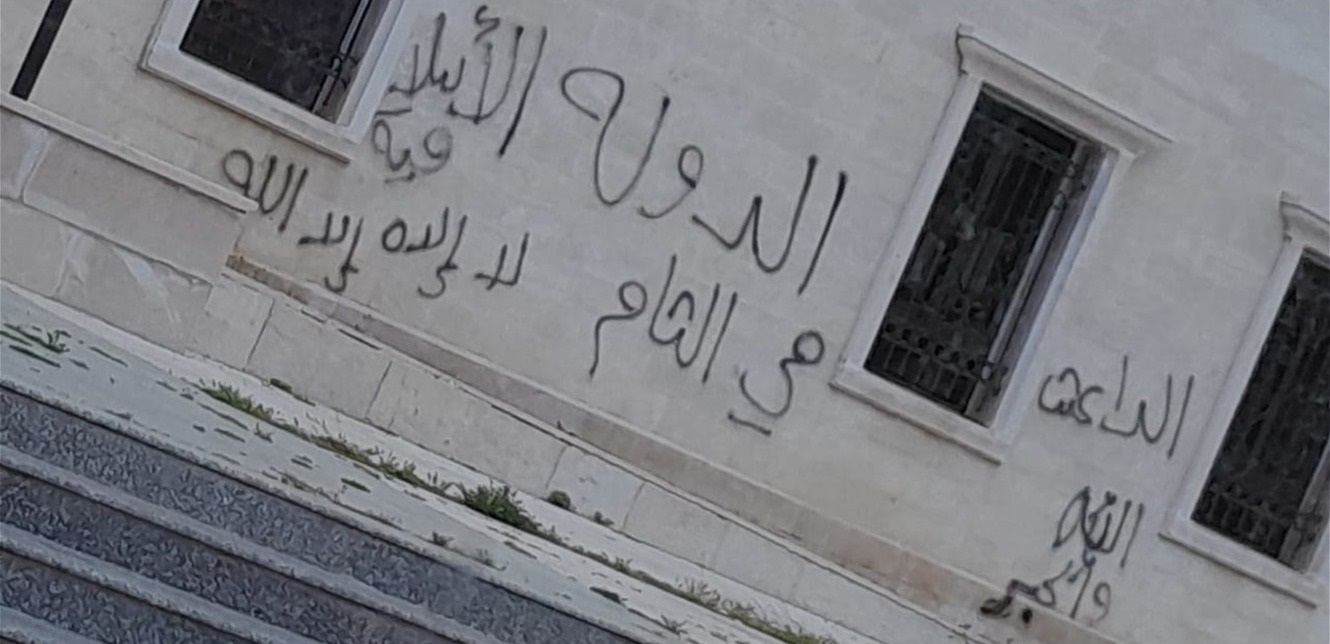 الدوله الأسلا
فيه
في الشام
لا إلاه إلا الله
الداعش
الله
وأكبر